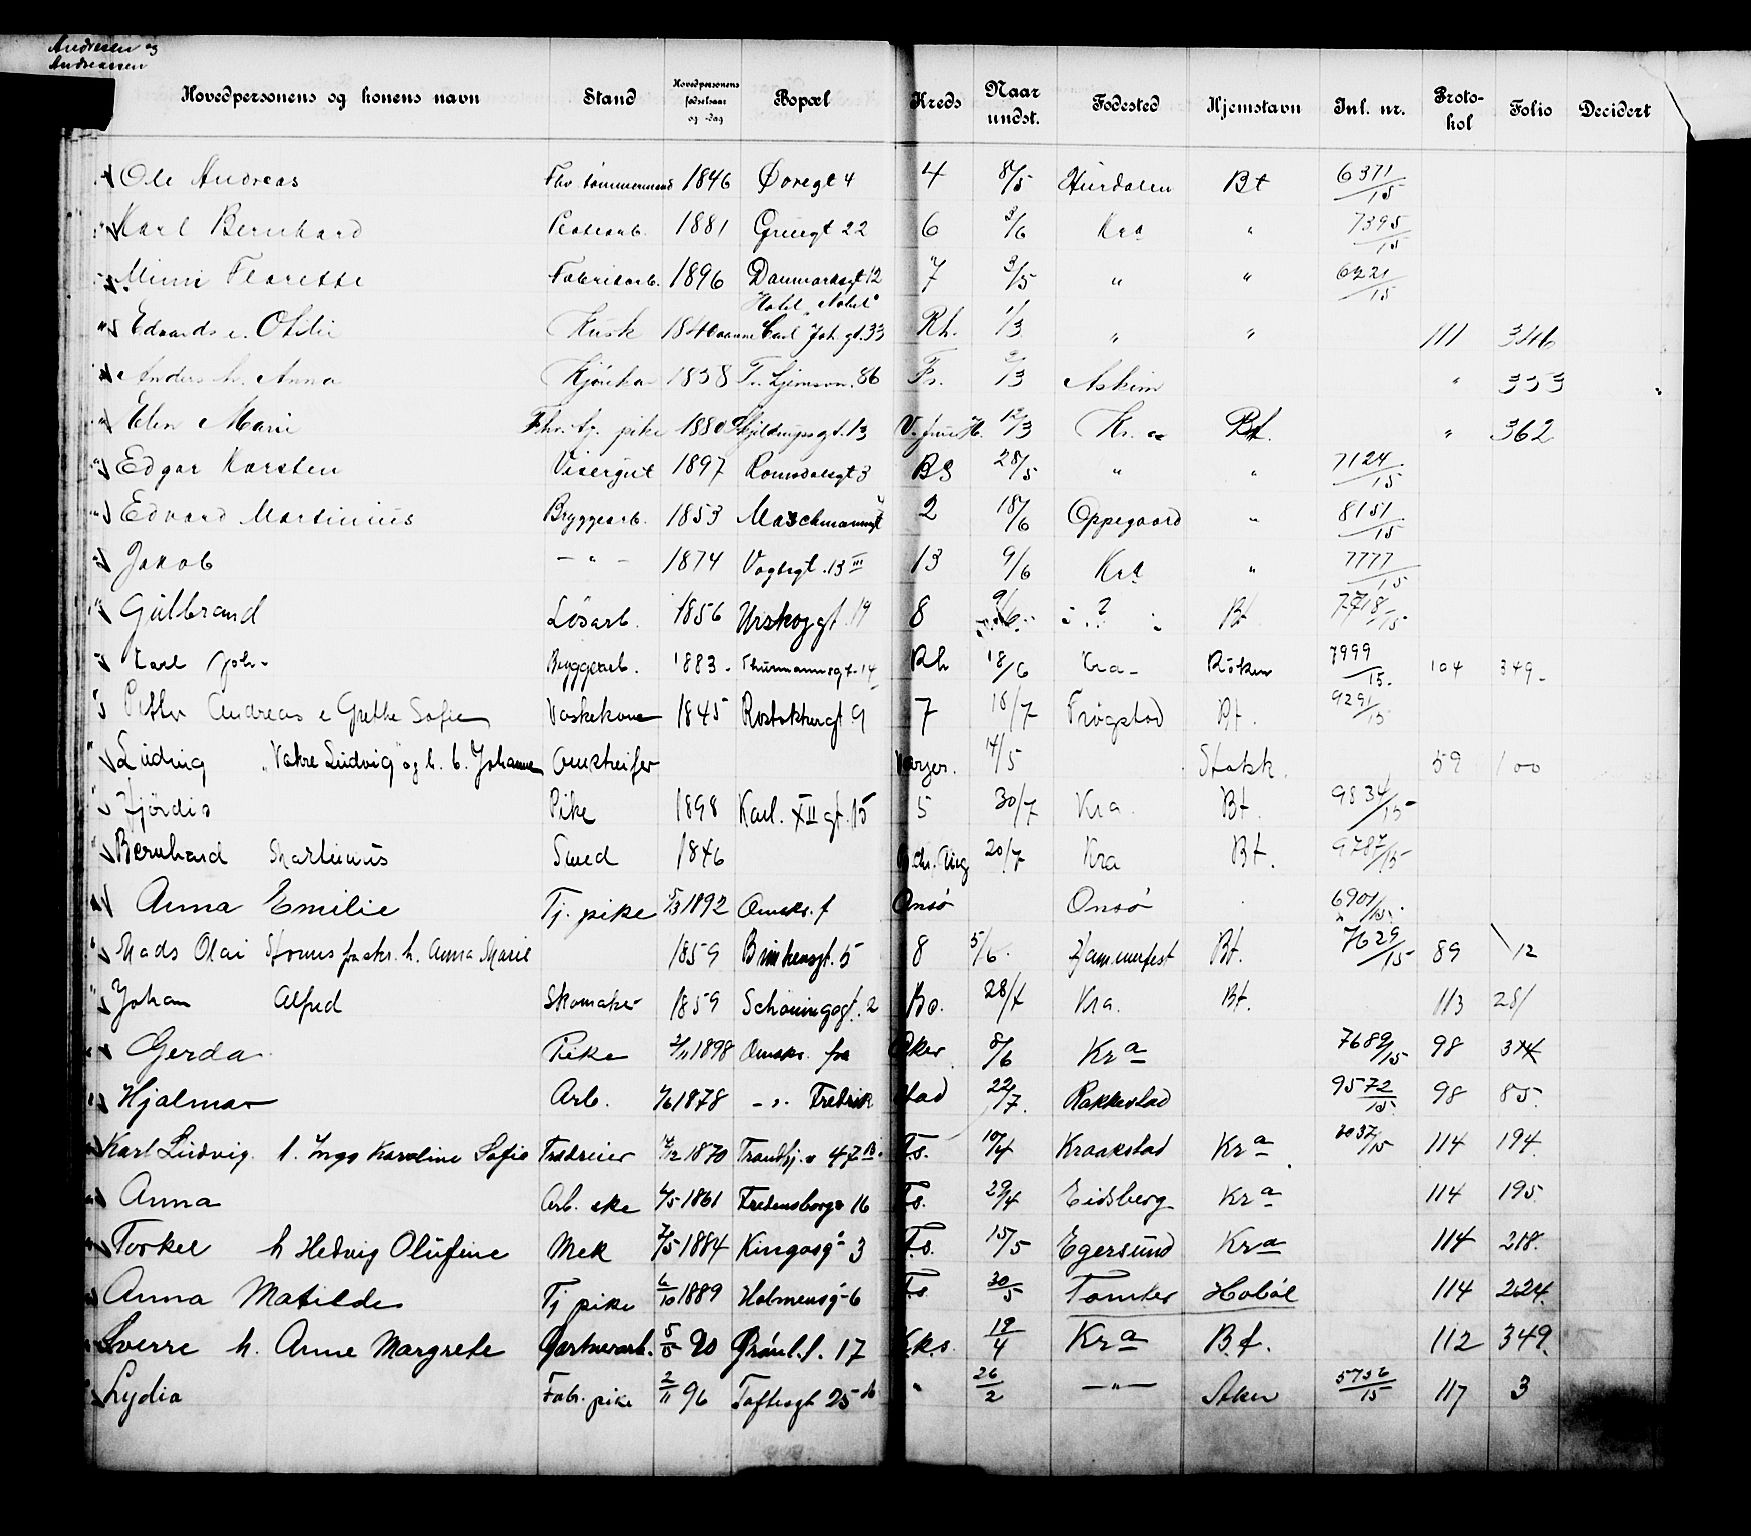 Andresen og
Andreassen
Hovedpersonens og konens navn Stand Hovedpersonens fødselsaar og -dag Bopæl Kreds Naar undst. Fødested Hjemstavn Inl. nr. Protokol Folio Decidert
Ole Andreas Fhv. tømmermand 1846 Øvregt 4 4 8/5 Hurdalen Bt 6371/15
Karl Bernhard 1881 22 6 3/6 Kra " 7395/15
Mimi Florette Fabrikarb. 1896 Danmarksgt 12 7 3/5 " " 6221/15
Hotel "Nobel"
Edvards e. Otilie Kusk 1840 Carl Joh. gt. 33 Rh. 1/3 " " 111 346
Anders h. Anna 1838 Tr.hjemsvn. 86 Fr. 2/3 Askim " 333
Elen Marie Fhv. tj. pike 1880 Skjoldungsgt. 13 V. frue H. 12/3 Kr. a Bt. " 362
Edgar Karsten Visergut 1897 Romsdalsgt 3 BS 28/5 " " 7124/15
Edvard Martinius Bryggearb. 1853 Maschmannsgt 2 18/6 Oppegaard " 8151/15
Jakob — " — 1874 Vogtsgt. 13 III 13 9/6 Kra " 7777/15
Gulbrand Løsarb. 1856 Urskoggt. 19 8 9/6 ? Bt 7718/15
Karl Joh. Bryggearb. 1883 Thurmannsgt. 14 Rh 18/6 Kra Røken 7999/15 104 349
Petter Andreas e Grethe Sofie Vaskekone 1845 Rostokkergt 9 7 18/7 Trøgstad Bt. 9291/15
Ludvig "Vakre Ludvig" og h. b. Johanne Omstreifer 14/5 Stokk. 59 100
Hjørdis Pike 1898 Karl. XII gt. 15 5 30/7 Kra. Bt. 9834/15
Bernhard Martinius Smed 1846 20/7 Kra Bt. 9787/15
Anna Emilie Tj. pike 5/3 1892 Omskr. f Onsø Onsø 6901/15
Mads Olai Stornes fraskr. h. Anna Marie 1859 Brinkensgt. 5 8 5/6 Hammerfest Bt. 7629/15 89 12
Johan Alfred Skomaker 1859 Schøningsgt. 2 Bo. 28/7 Kra. Bt. 113 281
Gerda Pike 2/11 1898 Omskr. fra Aker 8/6 Kra 7689/15 98 314
Hjalmar Arb. 1/6 1878 — " — Fredrikstad 22/7 Rakkestad 9572/15 98 85
Karl Ludvig. h. Inga Karoline Sofie 1870 Trondhj.v 47 B. F.s. 10/4 Kraakstad Kra 114 194
Anna Arb. ske 4/5 1861 Fredensborgv 16 F.s. 29/4 Eidsberg Kra 114 195
Torkel h Hedvig Olufine Mek 7/5 1884 Kingosg 3 F.s. 15/5 Egersund Kra 114 218.
Anna Matilde Tj pike 6/10 1889 Holmensg 6 F.s 30/5 Tomter Hobøl 114 224.
Sverre h. Anne Margrete Gartnerarb. 5/5 90 Grønl.l. 17 K.k.s. 19/4 Kra B.t. 112 349.
Lydia Fabr. pike 2/11 96 Toftesgt 25 " 26/2 — " — Aker 5756/15 117 3